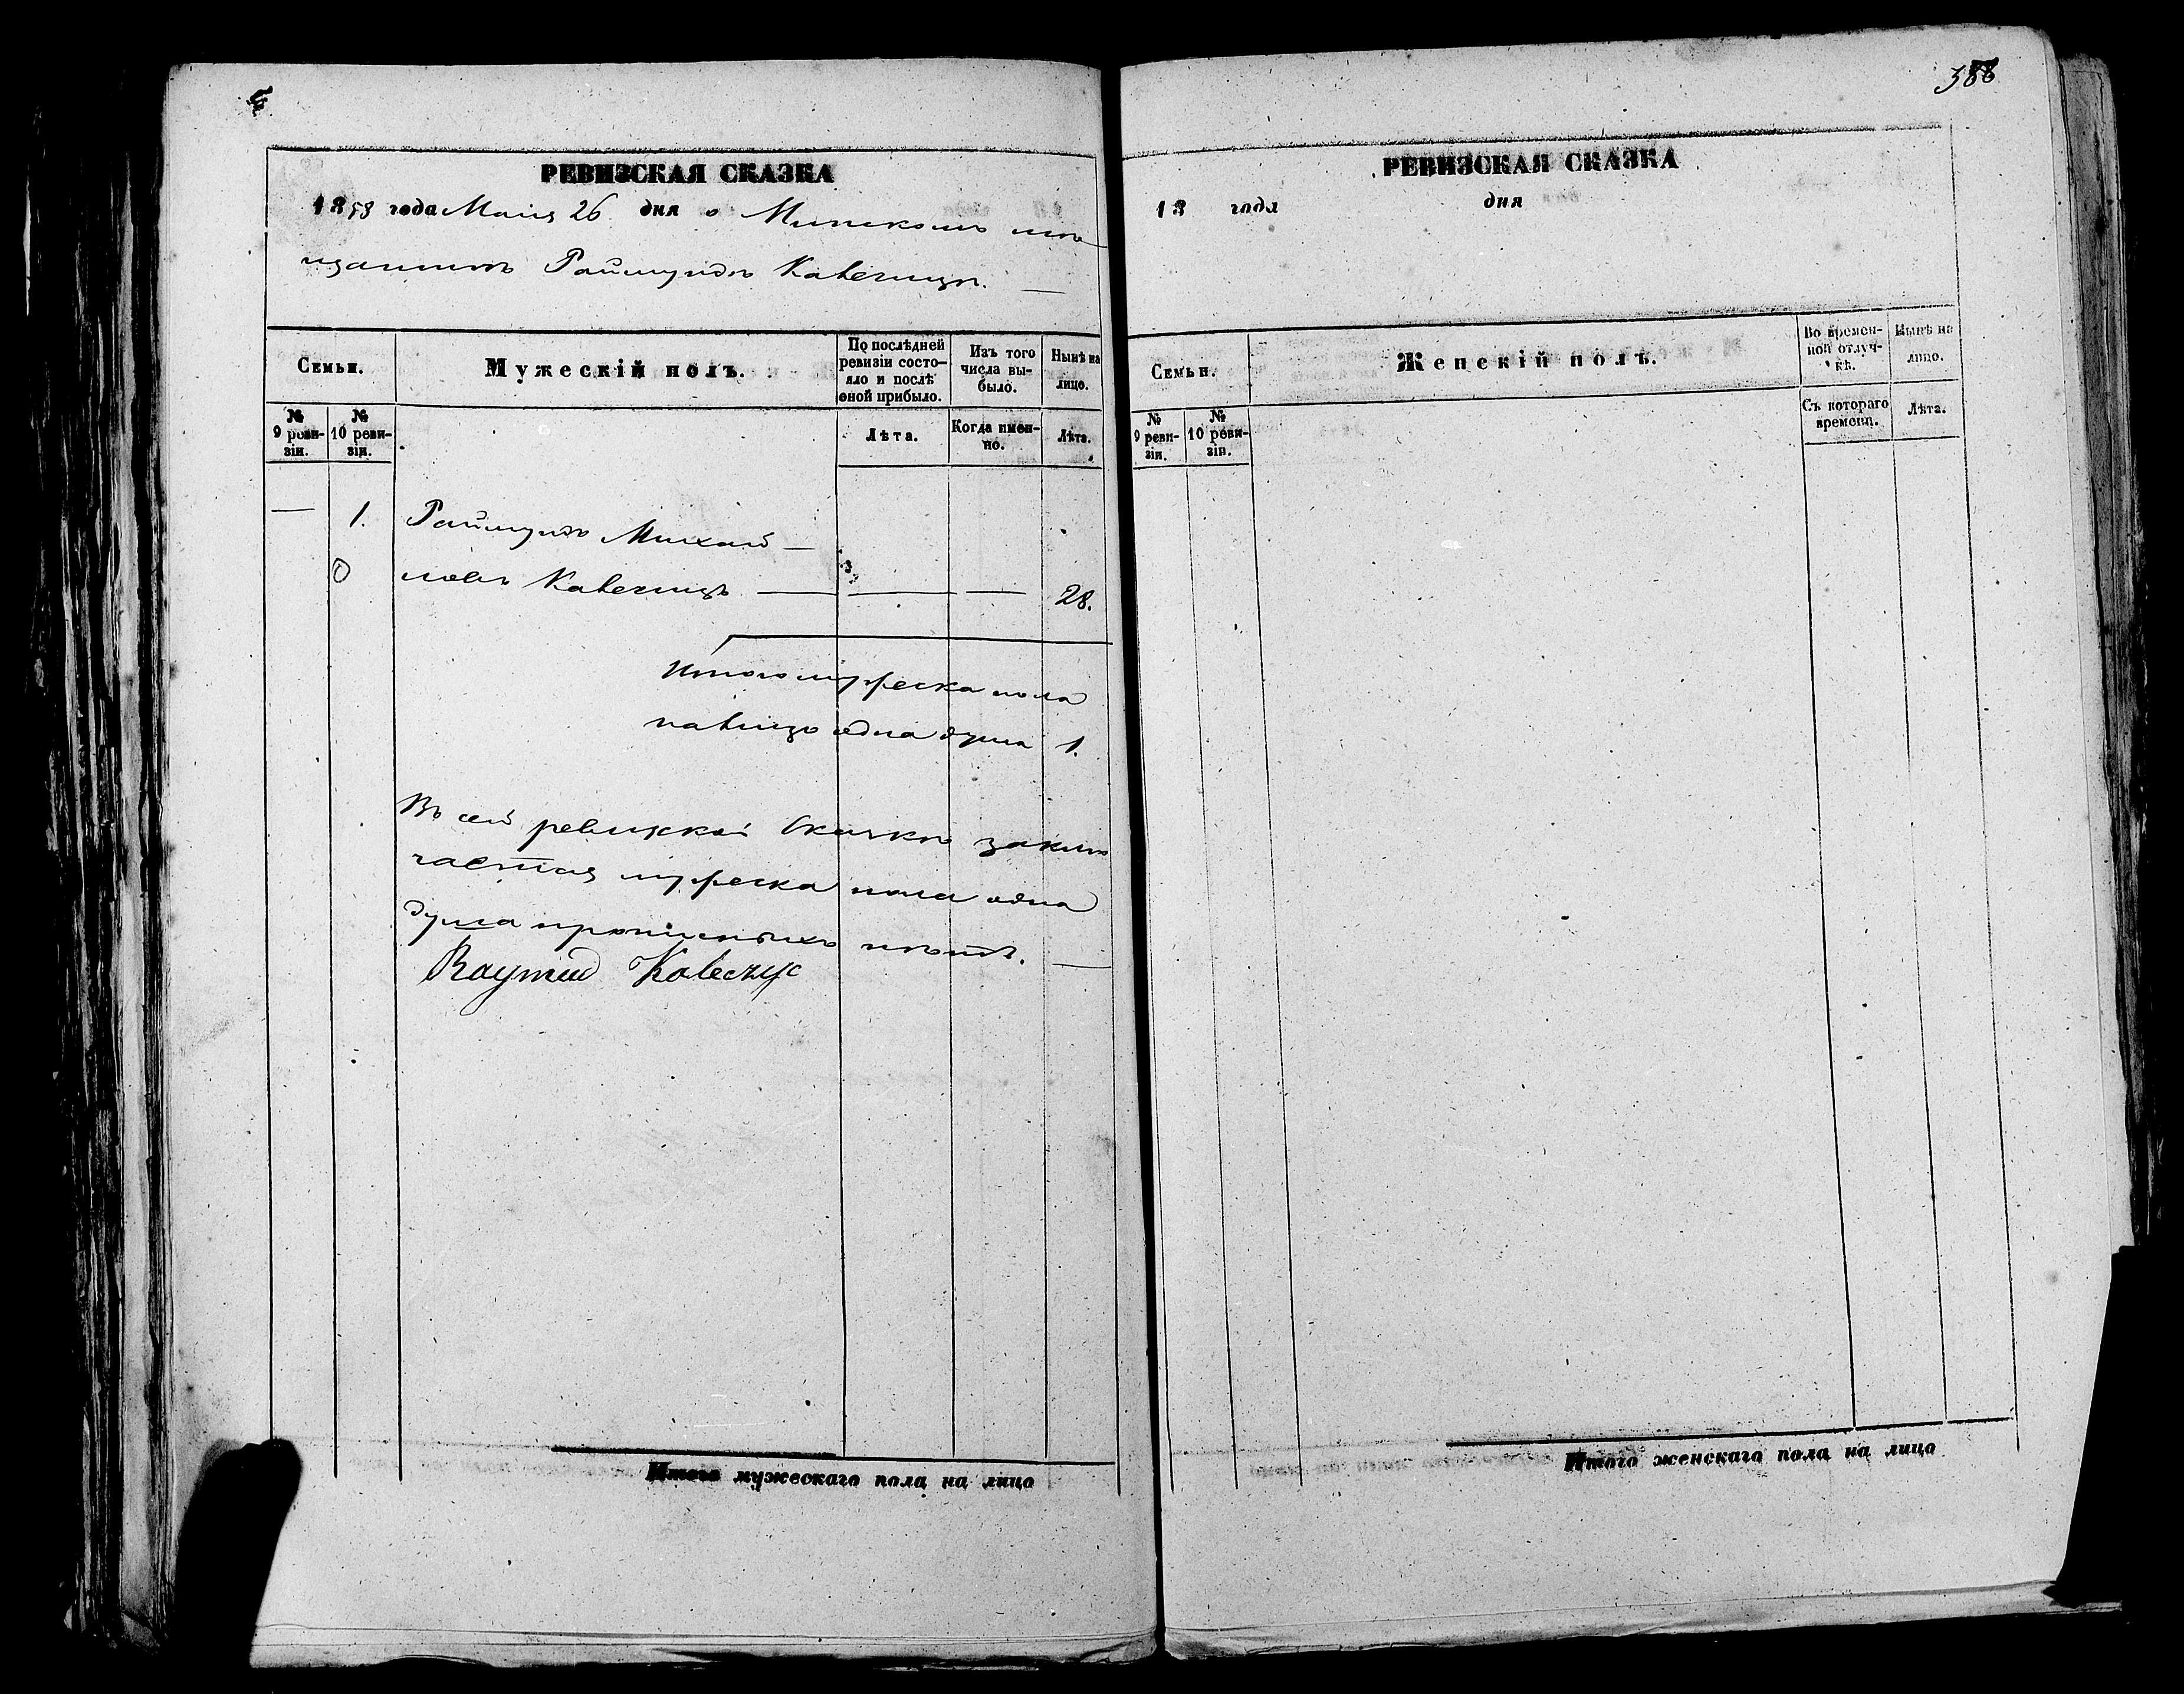 588
РЕВИЗСКАЯ СКАЗКА
1858 года Маія 26 дня о Минскомъ мѣ-
щанинѣ Раймундѣ Кавечицѣ. —
Семьи.
Мужескій полъ.
По послѣдней ревизіи состояло и послѣ оной прибыло.
Изъ того числа выбыло.
Нынѣ на лицо.
№ 9 ревизіи.
№ 10 ревизіи.
Лѣта.
Когда именно.
Лѣта.
— 1. Раймундъ Михай —
0 ловъ Кавечицъ — — — 28.
Итого мужеска пола
на лицо одна душа 1.
Въ сей ревизской Сказкѣ заклю
чается мужеска пола одна
душа прописныхъ нѣтъ. —
Raymund Kaweczyc
Итого мужескаго пола на лицо
РЕВИЗСКАЯ СКАЗКА
18 года дня
Семьи.
Женскій полъ.
Во временной отлучкѣ.
Нынѣ на лицо.
№ 9 ревизіи.
№ 10 ревизіи.
Съ котораго времени.
Лѣта.
Итого женскаго пола на лицо